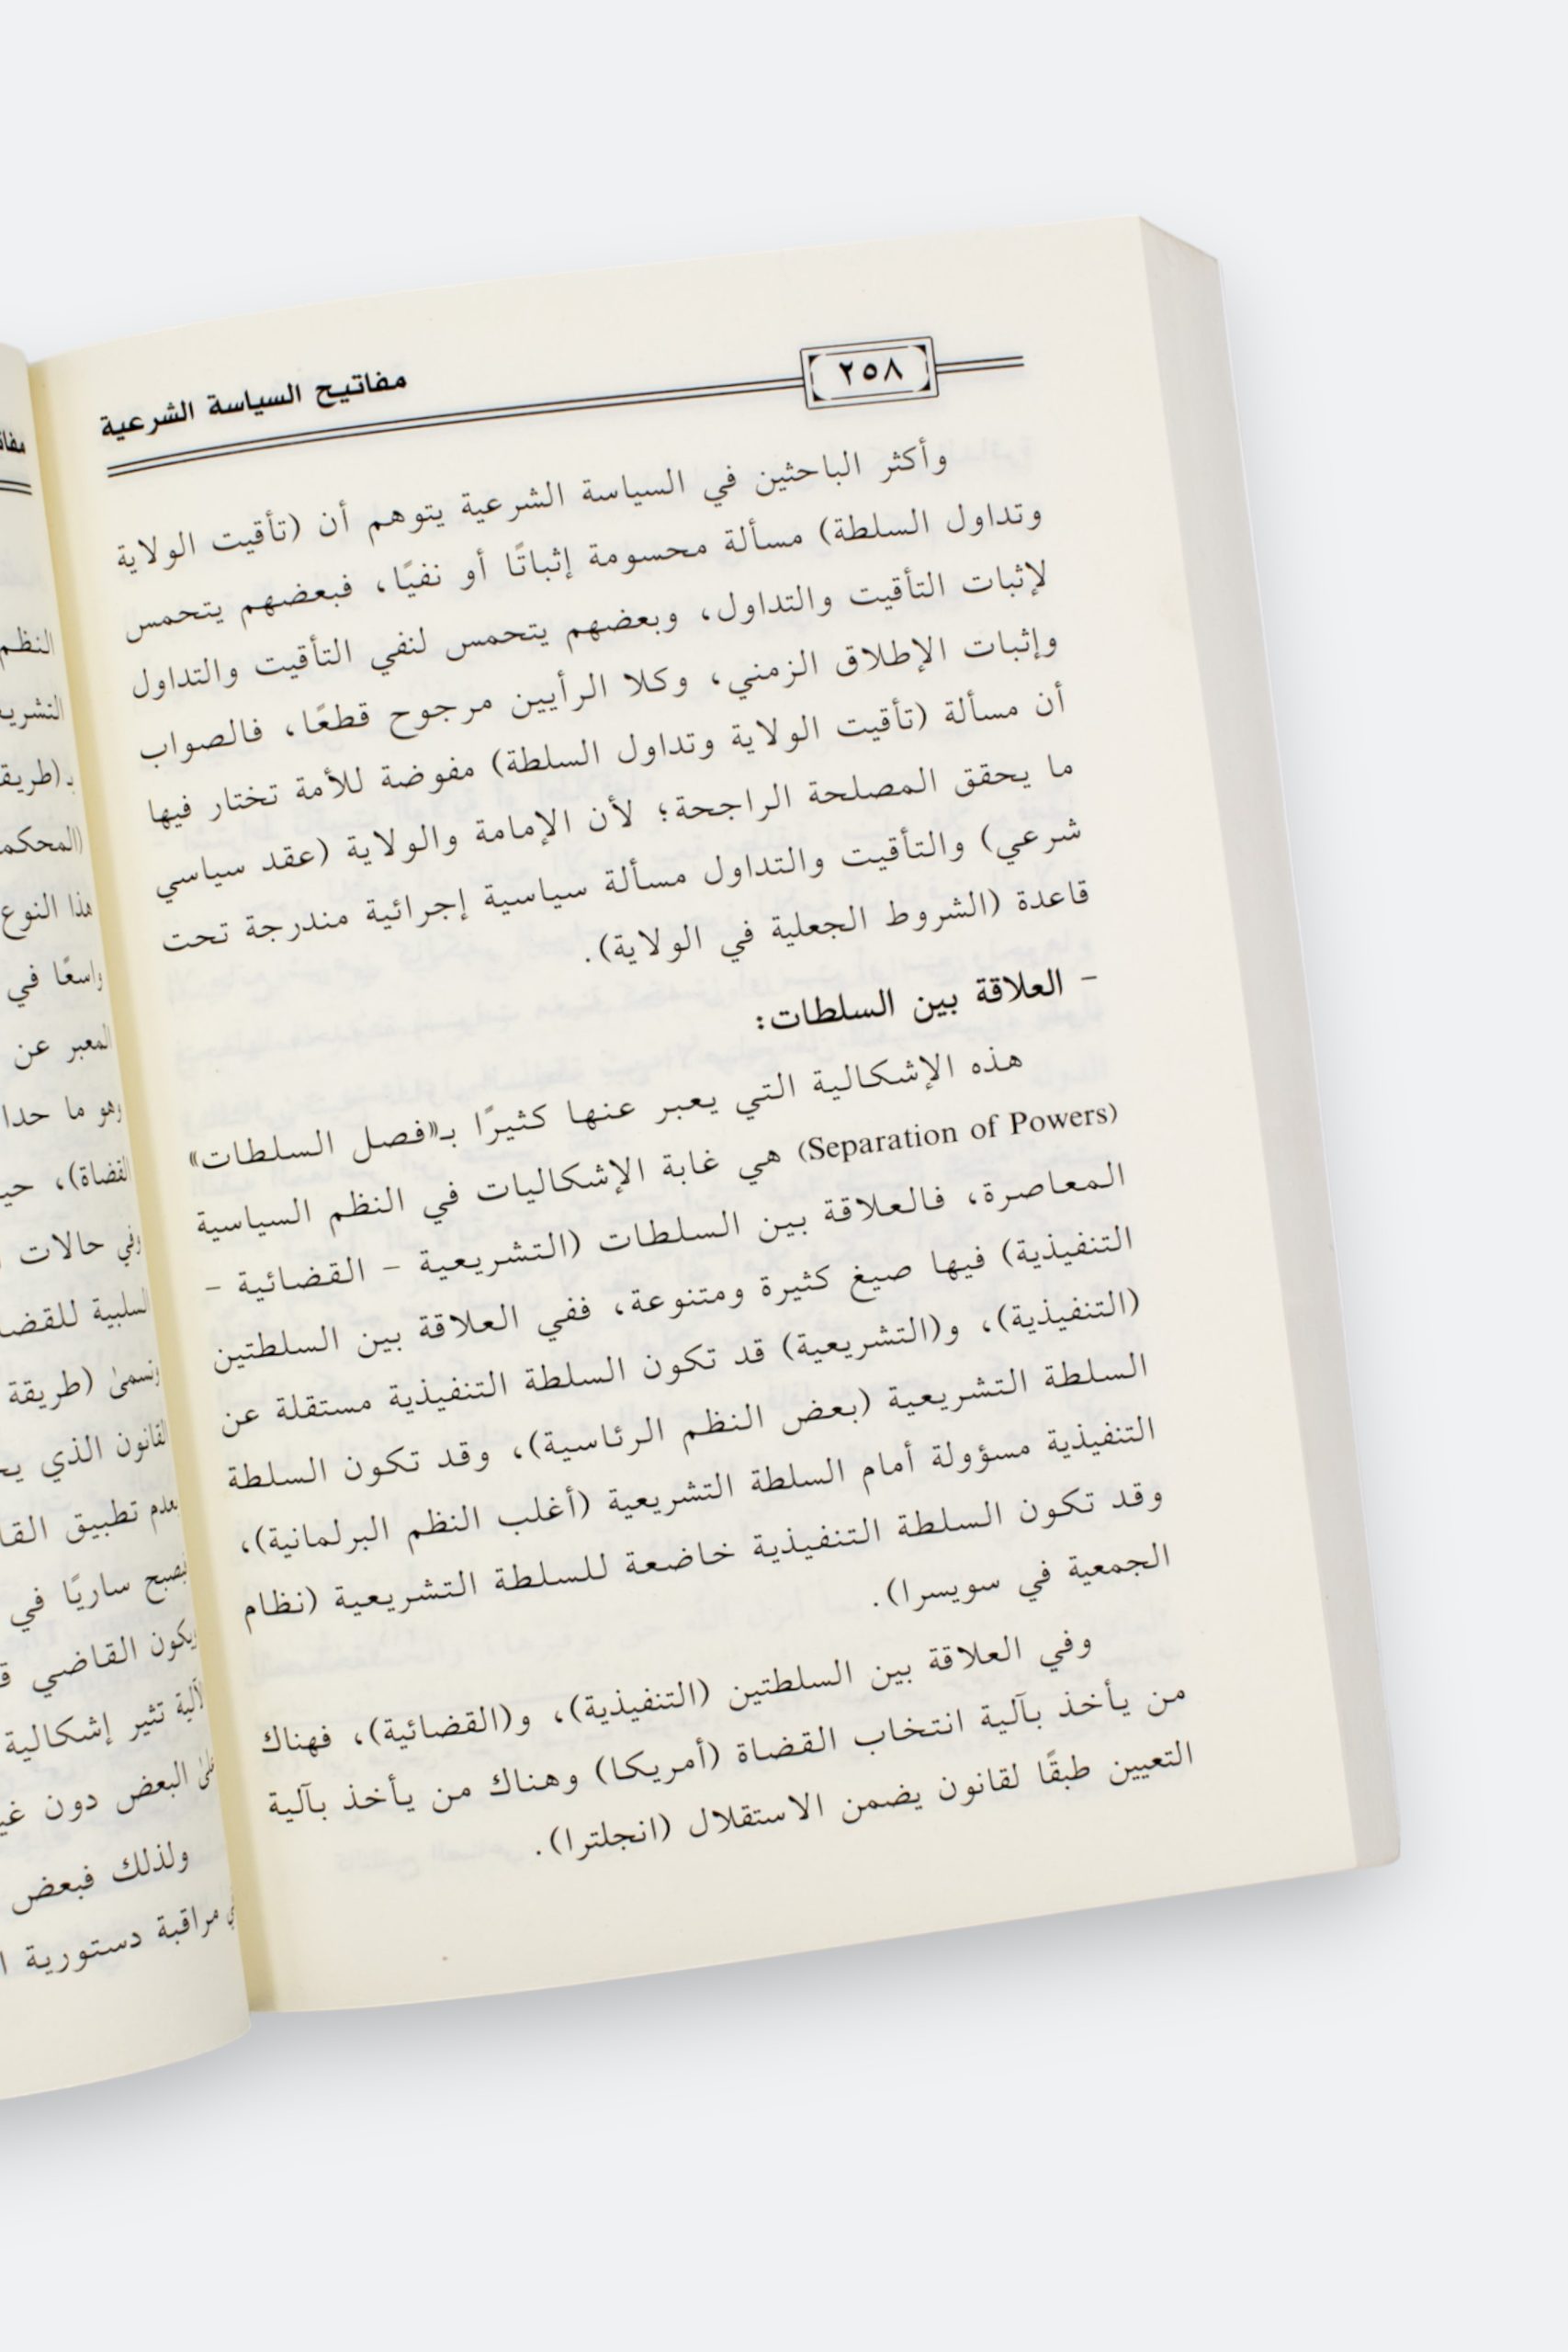 ٢٥٨
مفاتيح السياسة الشرعية
وأكثر الباحثين في السياسة الشرعية يتوهم أن (تأقيت الولاية
وتداول السلطة) مسألة محسومة إثباتًا أو نفيًا، فبعضهم يتحمس
لإثبات التأقيت والتداول، وبعضهم يتحمس لنفي التأقيت والتداول
وإثبات الإطلاق الزمني، وكلا الرأيين مرجوح قطعًا، فالصواب
أن مسألة (تأقيت الولاية وتداول السلطة) مفوضة للأمة تختار فيها
ما يحقق المصلحة الراجحة؛ لأن الإمامة والولاية (عقد سياسي
شرعي) والتأقيت والتداول مسألة سياسية إجرائية مندرجة تحت
قاعدة (الشروط الجعلية في الولاية).
- العلاقة بين السلطات:
هذه الإشكالية التي يعبر عنها كثيرًا بـ«فصل السلطات»
(Separation of Powers) هي غابة الإشكاليات في النظم السياسية
المعاصرة، فالعلاقة بين السلطات (التشريعية - القضائية -
التنفيذية) فيها صيغ كثيرة ومتنوعة، ففي العلاقة بين السلطتين
(التنفيذية)، و(التشريعية) قد تكون السلطة التنفيذية مستقلة عن
السلطة التشريعية (بعض النظم الرئاسية)، وقد تكون السلطة
التنفيذية مسؤولة أمام السلطة التشريعية (أغلب النظم البرلمانية)،
وقد تكون السلطة التنفيذية خاضعة للسلطة التشريعية (نظام
الجمعية في سويسرا).
وفي العلاقة بين السلطتين (التنفيذية)، و(القضائية)، فهناك
من يأخذ بآلية انتخاب القضاة (أمريكا) وهناك من يأخذ بآلية
التعيين طبقًا لقانون يضمن الاستقلال (انجلترا).
النظم
(المحكم
هذا النوع
واسعًا في
المعبر عن
وهو ما حدا
القضاة)، حي
وفي حالات
السلبية للقض
وتسمى (طريقة
القانون الذي
بعدم تطبيق
يصبح ساريًا في
ويكون القاضي
لآلية تثير إشكالية
على البعض دون
ولذلك فبعض
مراقبة دستورية